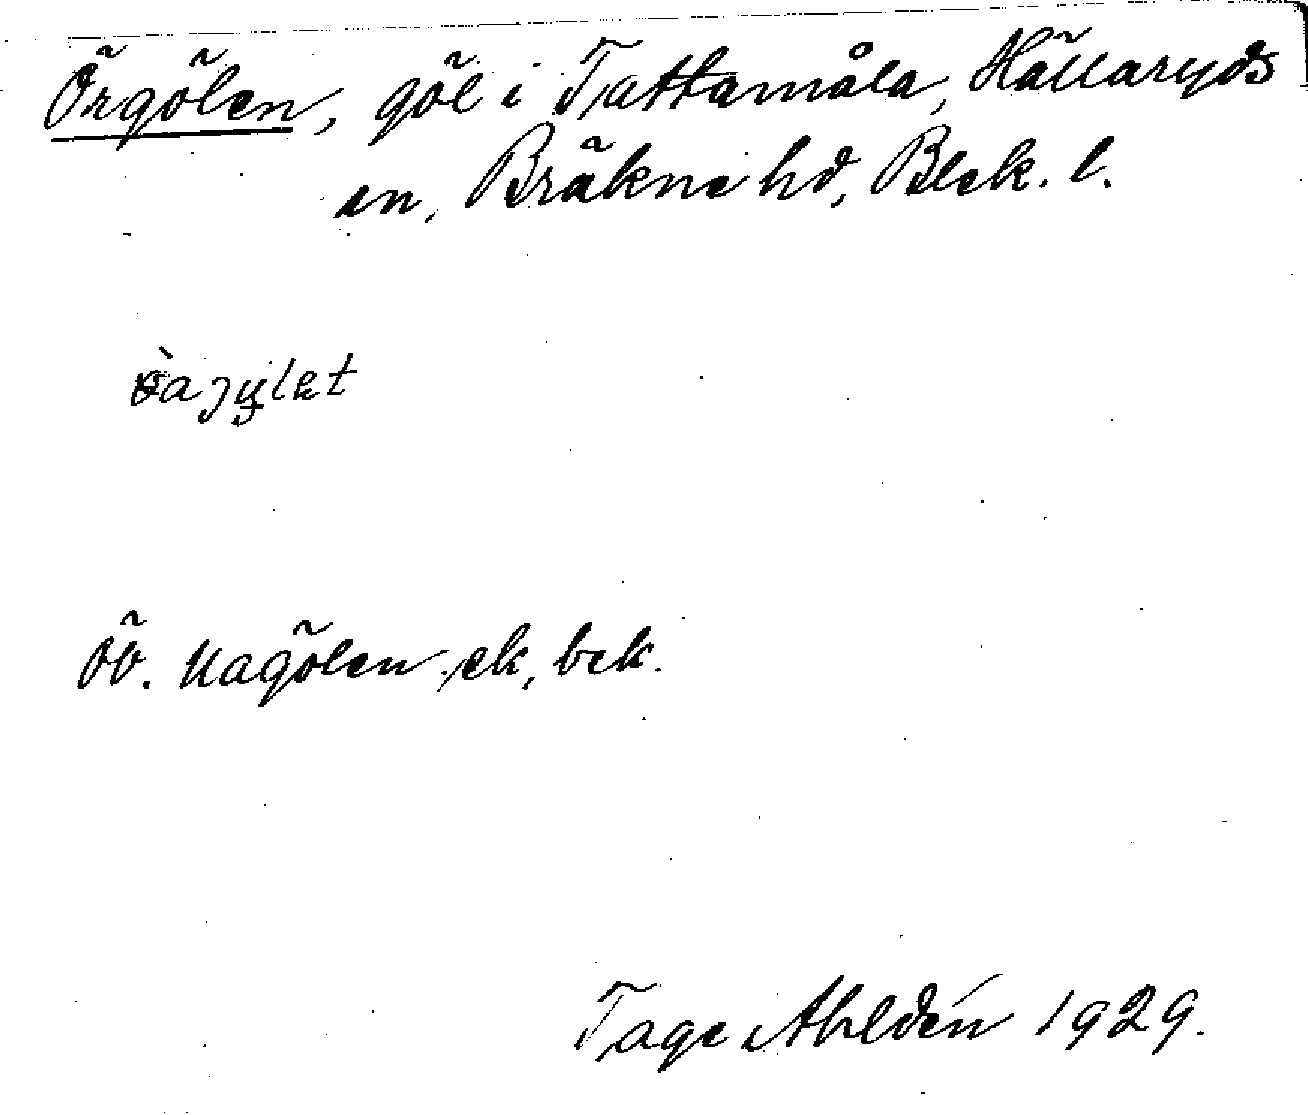 Örgölen, göl i Tattamåla, Hällaryds
sn, Bräkne hd, Blek. l.
Öv. Nagölen ek, bek.
Tage Ahldén 1929.